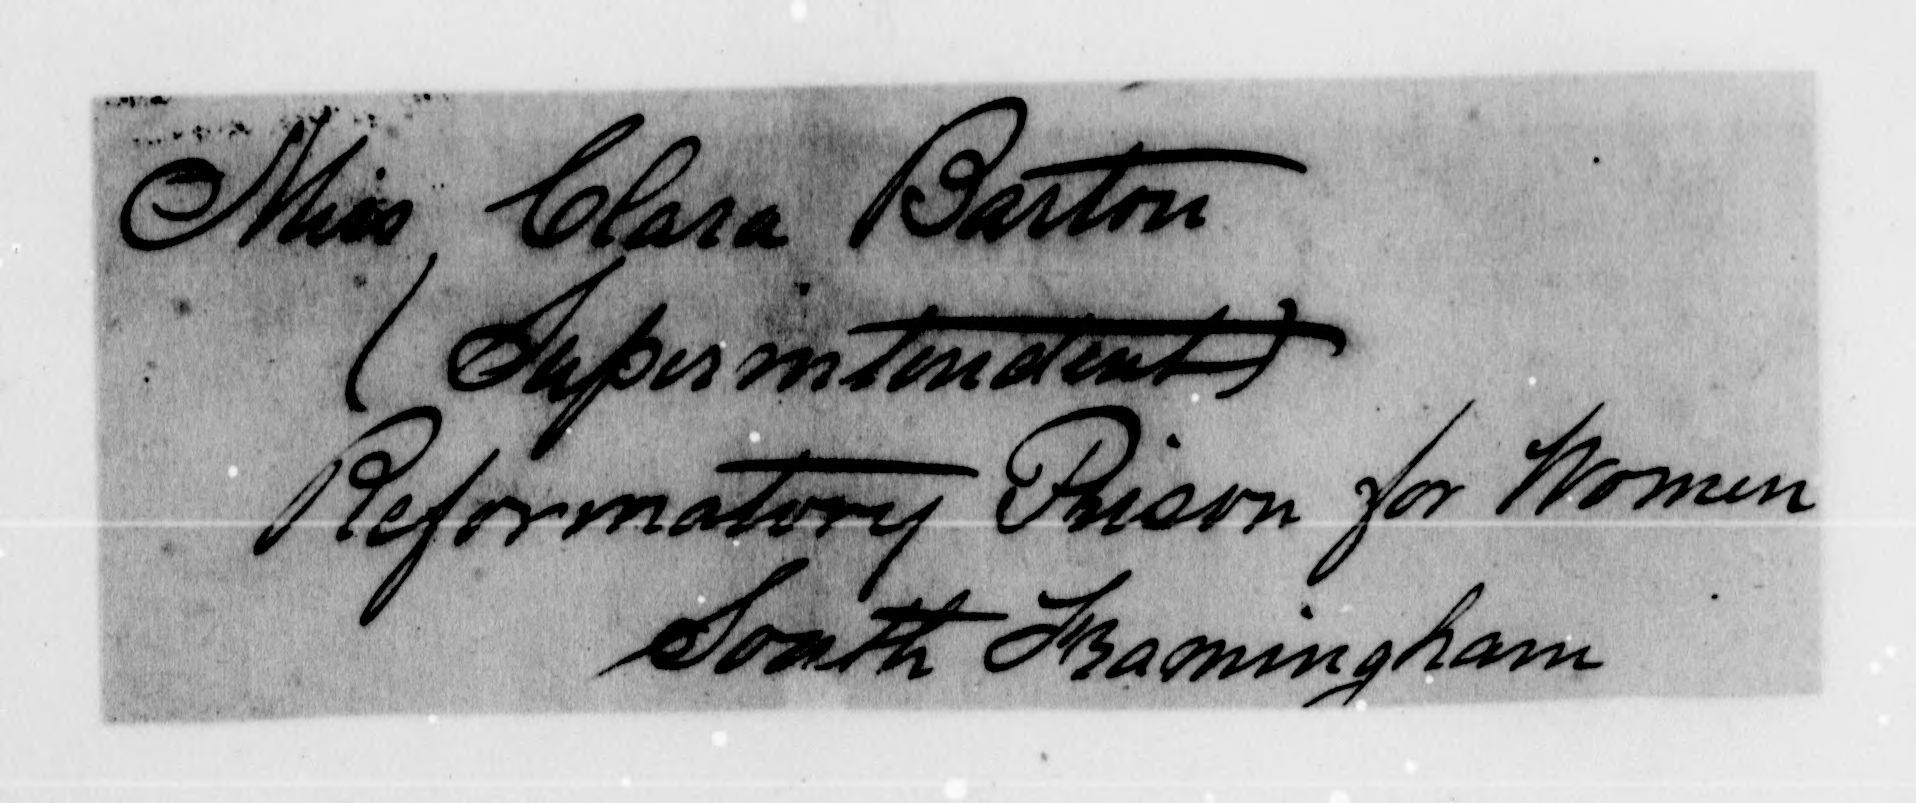 Miss Clara Barton
(Superintendent)
Reformatory Prison for Women
South Framingham